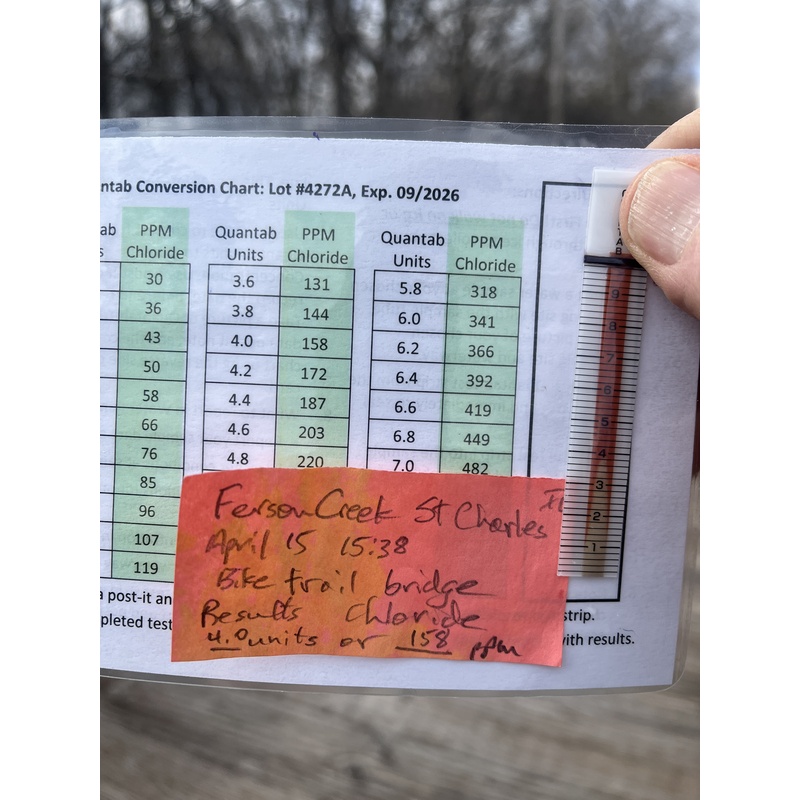 ntab Conversion Chart: Lot #4272A, Exp. 09/2026
ab PPM Quantab PPM Quantab PPM
s Chloride Units Chloride Units Chloride
30 3.6 131 5.8 318
36 3.8 144 6.0 341
43 4.0 158 6.2 366
50 4.2 172 6.4 392
58 4.4 187 6.6 419
66 4.6 203 6.8 449
76 4.8 220 7.0 482
85
96
107
119
a post-it an
pleted test
strip.
with results.
Ferson Creek St Charles IL
April 15 15:38
Bike trail bridge
Results Chloride
4.0 units or 158 ppm
9
8
7
6
5
4
3
2
1